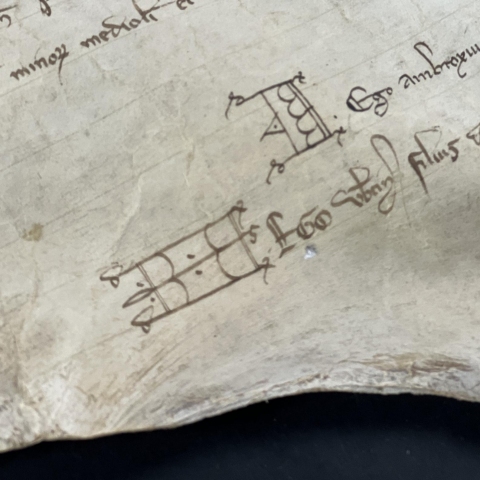 minoꝝ medioli et
Ego ambroxiu
EGO filius